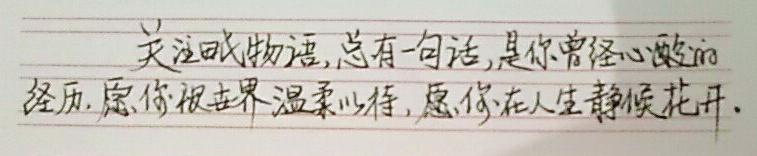 关注眠物语,总有一句话,是你曾经心酸的
经历.愿你被世界温柔以待,愿你在人生静候花开.